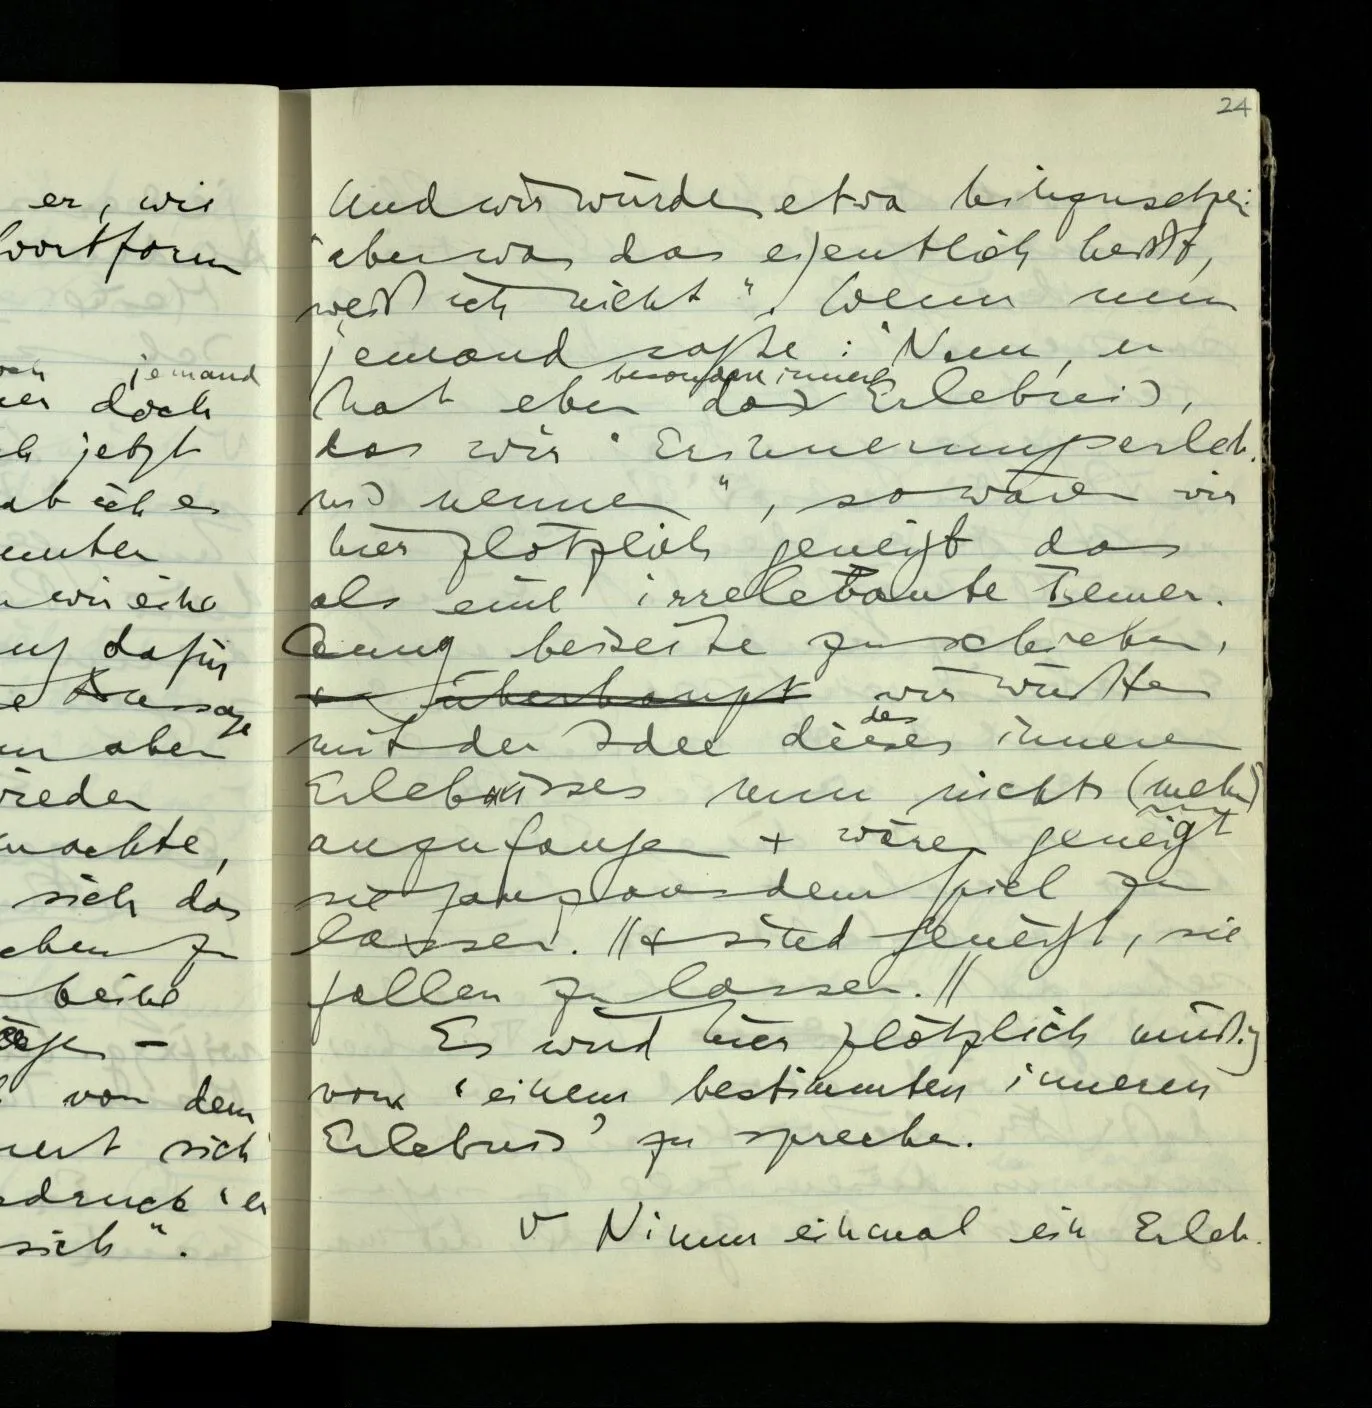 24
er, wie
Wortform
jemand
doch
jetzt
ab ich es
wir eine
dafür
aber
wieder
machte,
sich das
zu
keine
–
von dem
sich
'er
sich".
Und wir würden etwa hinzusetzen:
"aber was das eigentlich heißt,
weiß ich nicht". Wenn nun
jemand sagte: "Nun, er
besondere innere
hat eben das Erlebnis,
das wir 'Erinnerungserleb-
nis nennen", so wären wir
hier plötzlich geneigt das
als eine irrelevante Bemer-
kung beiseite zu schieben,
überhaupt wir wüßten
des
mit der Idee dieses inneren
Erlebnisses nun nichts (mehr)
anzufangen + wären geneigt
sie ganz aus dem Spiel zu
lassen. //+ sind geneigt, sie
fallen zu lassen.//
Es wird hier plötzlich müßig
von 'einem bestimmten inneren
Erlebnis' zu sprechen.
v Nimm einmal ein Erleb-